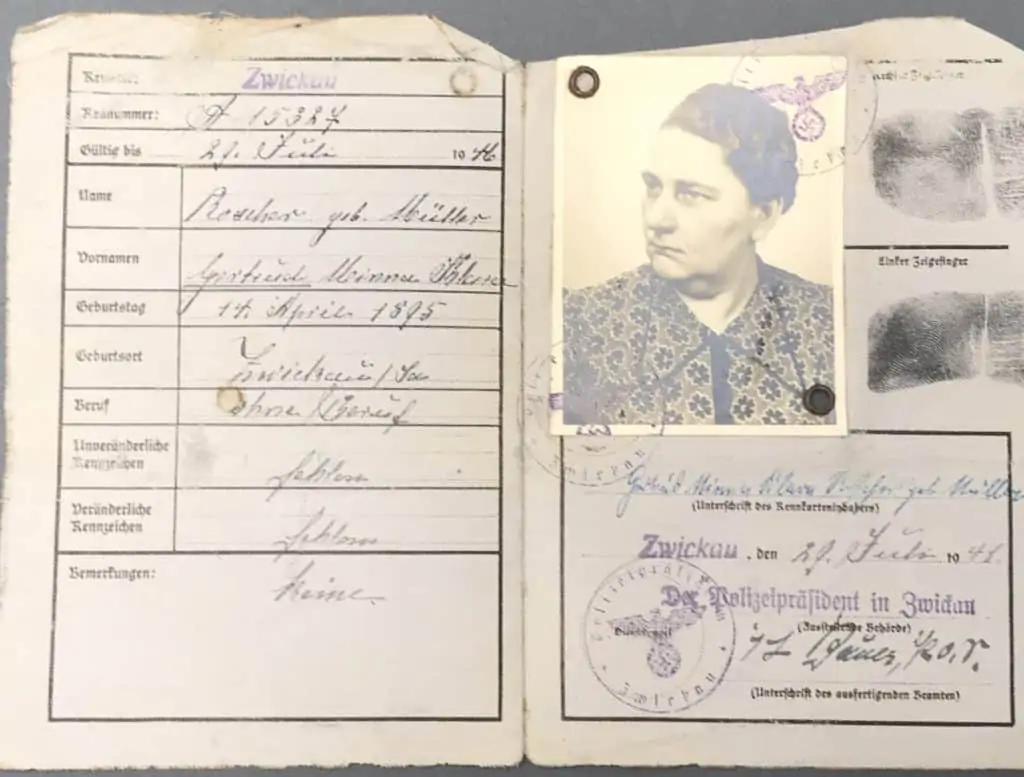 Zwickau
Kennnummer: A 15327
Gültig bis 29. Juli 1946
Name Roscher geb. Müller
Vornamen Gertrud Minna Klara
Geburtstag 14. April 1895
Geburtsort Zwickau/Sa
Beruf ohne Beruf
Unveränderliche
Kennzeichen fehlen
Veränderliche
Kennzeichen fehlen
Bemerkungen: keine
Zeigefinger
Linker Zeigefinger
Zwickau
Gertrud Minna Klara Roscher geb. Müller
(Unterschrift des Kennkarteninhabers)
Zwickau, den 29. Juli 1941.
Der Polizeipräsident in Zwickau
(Ausstellende Behörde)
Dienststempel
Polizeipräsident
Zwickau
(Unterschrift des ausfertigenden Beamten)